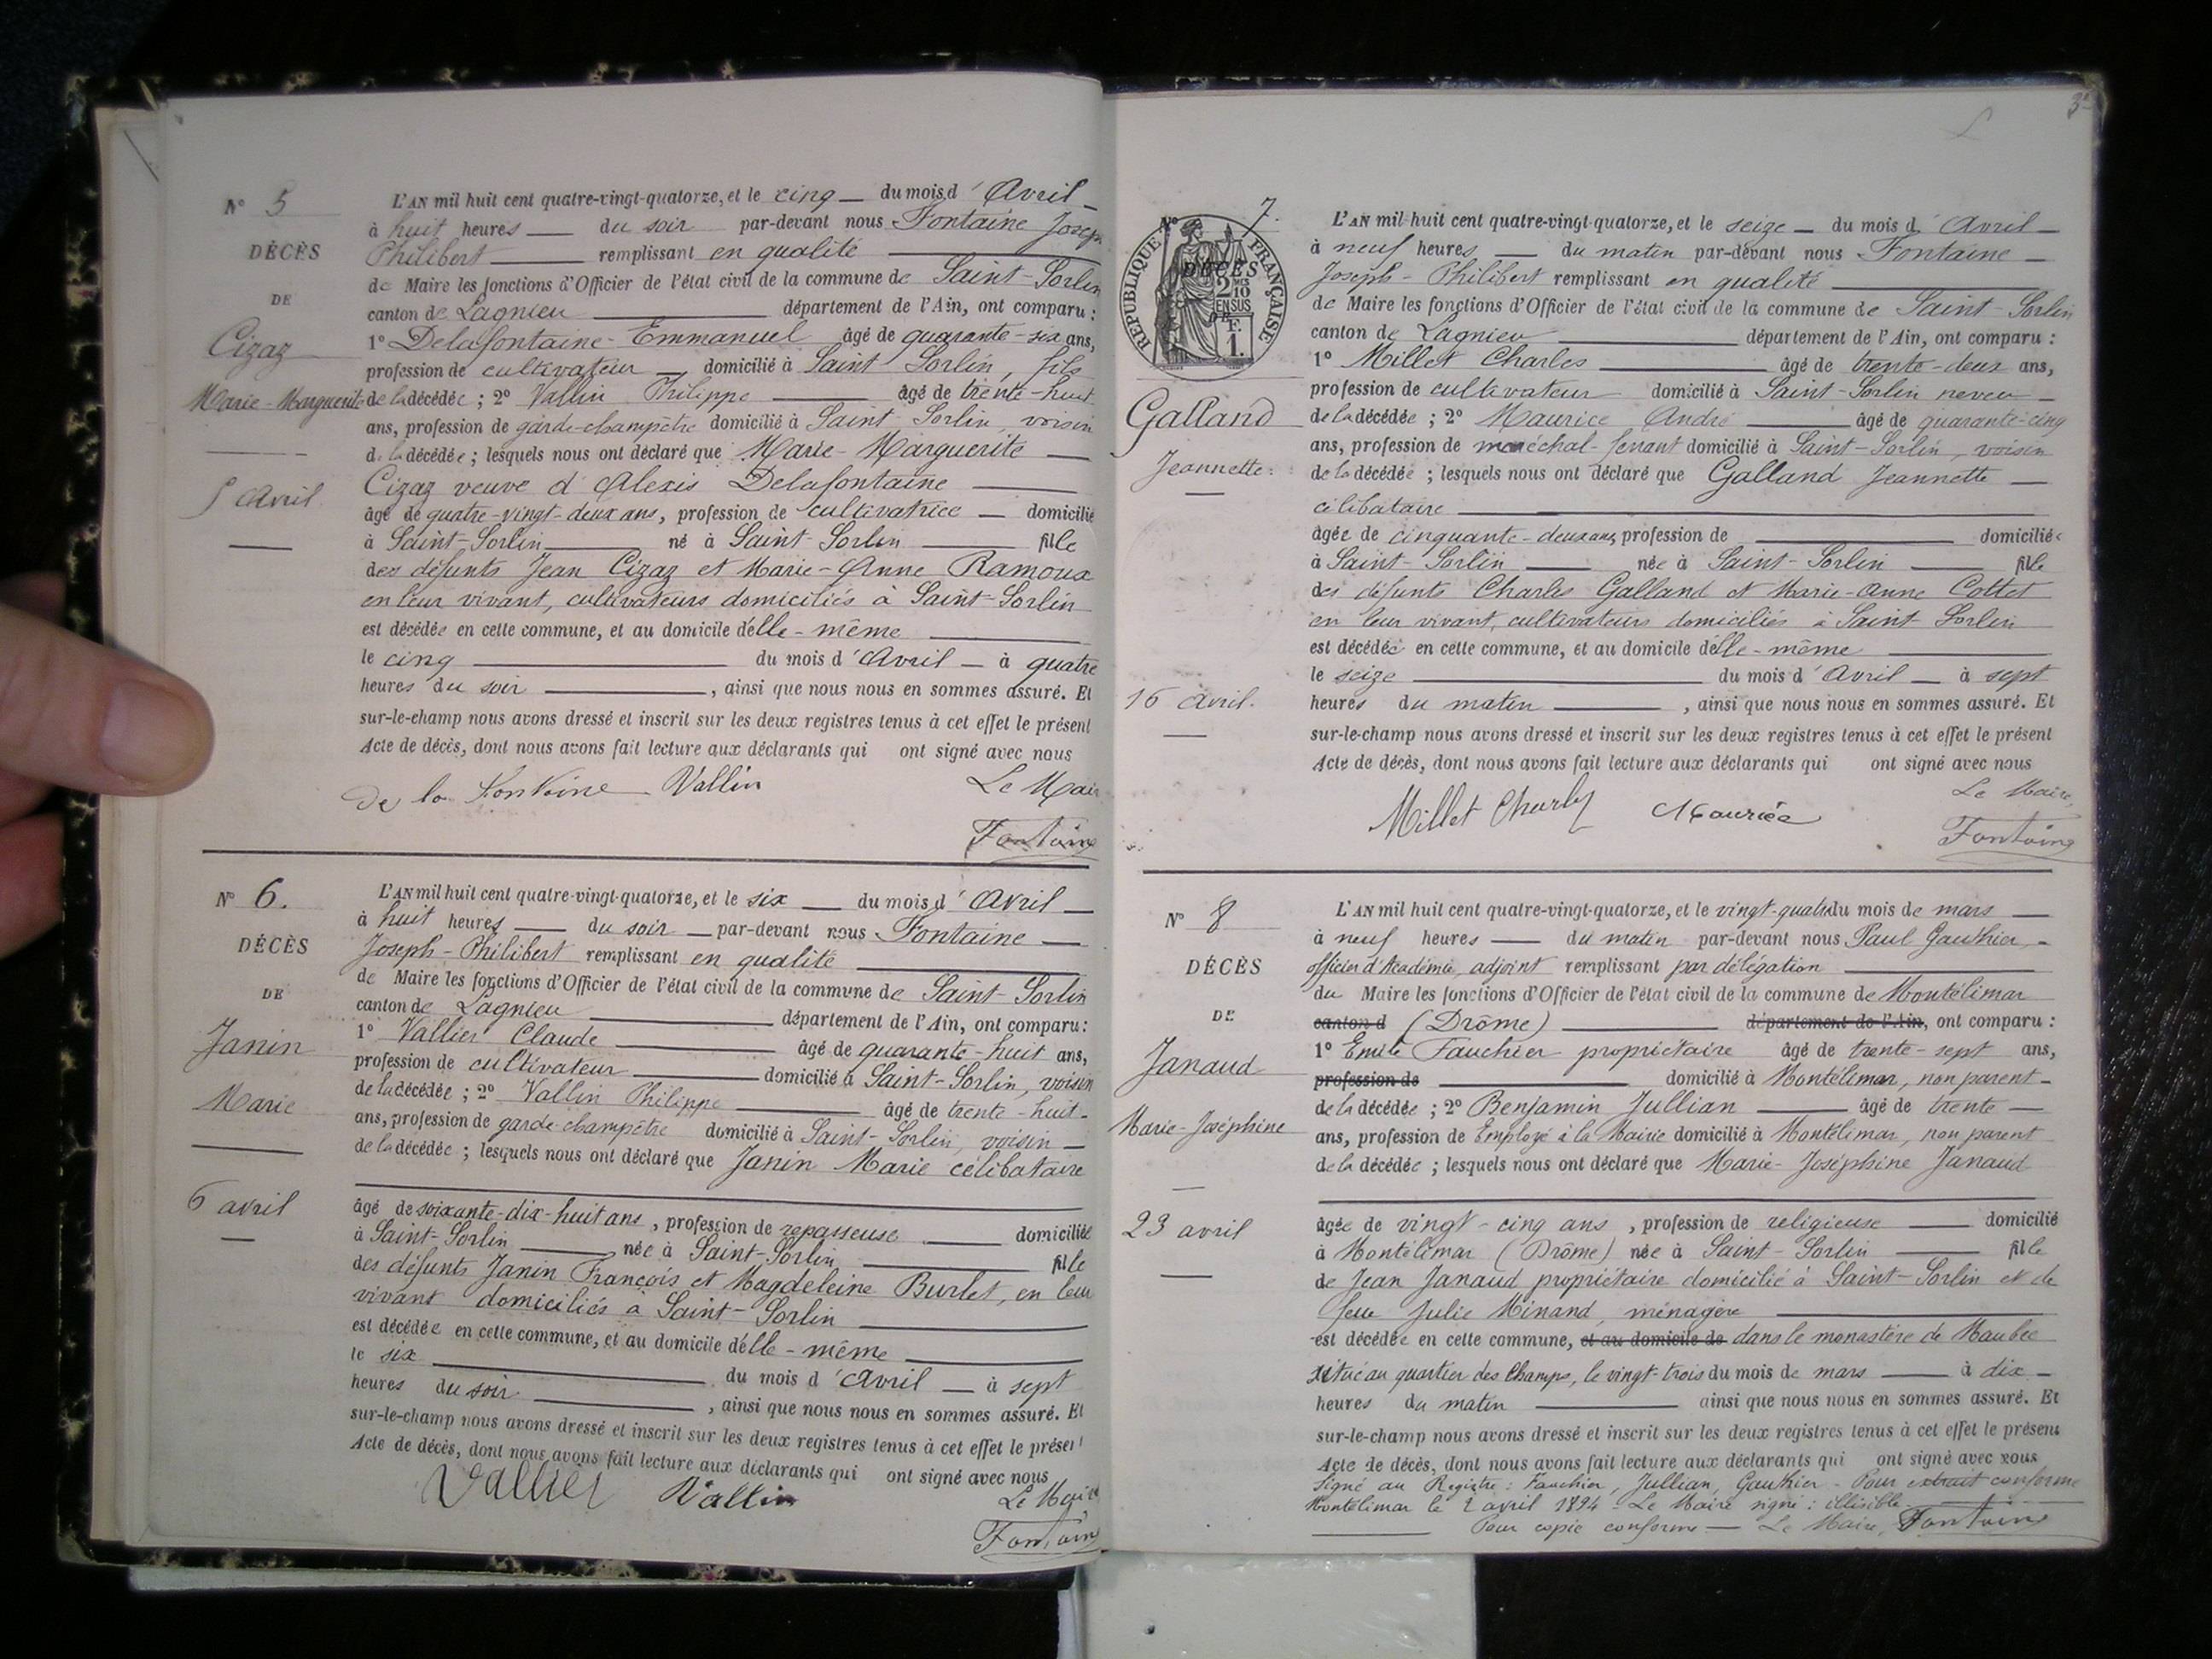 N° 5
DÉCÈS
DE
Cizaz
Marie-Marguerite
5 Avril
L'AN mil huit cent quatre-vingt-quatorze, et le cinq du mois d'Avril
à huit heures du soir par-devant nous Fontaine Joseph
Philibert remplissant en qualité
de Maire les fonctions d'Officier de l'état civil de la commune de Saint-Sorlin
canton de Lagnieu département de l'Ain, ont comparu :
1° Delafontaine Emmanuel âgé de quarante-six ans,
profession de cultivateur domicilié à Saint Sorlin, fils
de la décédée ; 2° Vallin Philippe âgé de trente-huit
ans, profession de garde-champêtre domicilié à Saint Sorlin, voisin
de la décédée ; lesquels nous ont déclaré que Marie-Marguerite
Cizaz veuve d'Alexis Delafontaine
âgé de quatre-vingt-deux ans, profession de cultivatrice domicilié
à Saint-Sorlin né à Saint-Sorlin fille
des défunts Jean Cizaz et Marie-Anne Ramoux
en leur vivant, cultivateurs domiciliés à Saint-Sorlin
est décédée en cette commune, et au domicile d'elle-même
le cinq du mois d'Avril à quatre
heures du soir, ainsi que nous nous en sommes assuré. Et
sur-le-champ nous avons dressé et inscrit sur les deux registres tenus à cet effet le présent
Acte de décès, dont nous avons fait lecture aux déclarants qui ont signé avec nous
de la Fontaine Vallin Le Mair
Fontaine
N° 6.
DÉCÈS
DE
Janin
Marie
6 avril
L'AN mil huit cent quatre-vingt-quatorze, et le six du mois d'Avril
à huit heures du soir par-devant nous Fontaine
Joseph-Philibert remplissant en qualité
de Maire les fonctions d'Officier de l'état civil de la commune de Saint-Sorlin
canton de Lagnieu département de l'Ain, ont comparu :
1° Vallier Claude âgé de quarante-huit ans,
profession de cultivateur domicilié à Saint-Sorlin, voisin
de la décédée ; 2° Vallin Philippe âgé de trente-huit
ans, profession de garde-champêtre domicilié à Saint-Sorlin, voisin
de la décédée ; lesquels nous ont déclaré que Janin Marie célibataire
âgé de soixante-dix-huit ans, profession de repasseuse domiciliée
à Saint-Sorlin née à Saint-Sorlin fille
des défunts Janin François et Magdeleine Burlet, en leur
vivant domiciliés à Saint-Sorlin
est décédée en cette commune, et au domicile d'elle-même
le six du mois d'Avril à sept
heures du soir, ainsi que nous nous en sommes assuré. Et
sur-le-champ nous avons dressé et inscrit sur les deux registres tenus à cet effet le présent
Acte de décès, dont nous avons fait lecture aux déclarants qui ont signé avec nous
Vallier Vallin Le Maire
Fontaine
3e
N° 7.
RÉPUBLIQUE FRANÇAISE
DÉCÈS
2/10
EN SUS
DE
F.
1.
Galland
Jeannette
16 avril.
L'AN mil huit cent quatre-vingt-quatorze, et le seize du mois d'Avril
à neuf heures du matin par-devant nous Fontaine
Joseph-Philibert remplissant en qualité
de Maire les fonctions d'Officier de l'état civil de la commune de Saint-Sorlin
canton de Lagnieu département de l'Ain, ont comparu :
1° Millet Charles âgé de trente-deux ans,
profession de cultivateur domicilié à Saint-Sorlin neveu
de la décédée ; 2° Maurice André âgé de quarante-cinq
ans, profession de maréchal-ferrant domicilié à Saint-Sorlin, voisin
de la décédée ; lesquels nous ont déclaré que Galland Jeannette
célibataire
âgée de cinquante-deux ans, profession de domiciliée
à Saint-Sorlin née à Saint-Sorlin fille
des défunts Charles Galland et Marie-Anne Cottet
en leur vivant, cultivateurs domiciliés à Saint Sorlin
est décédée en cette commune, et au domicile d'elle-même
le seize du mois d'Avril à sept
heures du matin, ainsi que nous nous en sommes assuré. Et
sur-le-champ nous avons dressé et inscrit sur les deux registres tenus à cet effet le présent
Acte de décès, dont nous avons fait lecture aux déclarants qui ont signé avec nous
Le Maire,
Millet Charles Maurice Fontaine
N° 8
DÉCÈS
DE
Janaud
Marie-Joséphine
23 avril
L'AN mil huit cent quatre-vingt-quatorze, et le vingt-quatre du mois de mars
à neuf heures du matin par-devant nous Paul Gauthier,
officier d'Académie, adjoint remplissant par délégation
du Maire les fonctions d'Officier de l'état civil de la commune de Montélimar
canton d (Drôme) département de l'Ain, ont comparu :
1° Emile Fauchier propriétaire âgé de trente-sept ans,
profession de domicilié à Montélimar, non parent
de la décédée ; 2° Benjamin Jullian âgé de trente
ans, profession de Employé à la Mairie domicilié à Montélimar, non parent
de la décédée ; lesquels nous ont déclaré que Marie-Joséphine Janaud
âgée de vingt-cinq ans, profession de religieuse domicilié
à Montélimar (Drôme) née à Saint-Sorlin fille
de Jean Janaud propriétaire domicilié à Saint-Sorlin et de
feue Julie Minand, ménagère
est décédée en cette commune, et au domicile de dans le monastère de Maubec
situé au quartier des Champs, le vingt-trois du mois de mars à dix
heures du matin ainsi que nous nous en sommes assuré. Et
sur-le-champ nous avons dressé et inscrit sur les deux registres tenus à cet effet le présent
Acte de décès, dont nous avons fait lecture aux déclarants qui ont signé avec nous
Signé au Registre : Fauchier, Jullian, Gauthier - Pour extrait conforme
Montélimar le 2 avril 1894 - Le Maire signé : illisible
Pour copie conforme - Le Maire, Fontaine